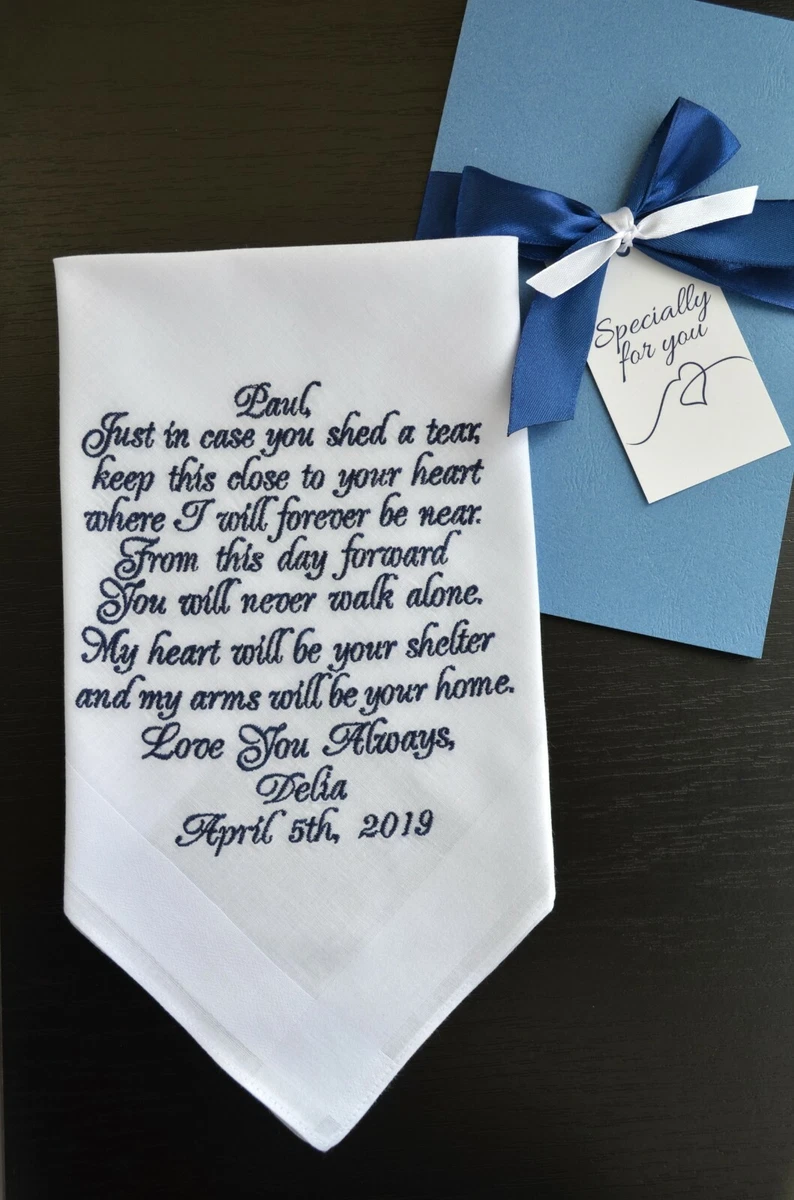 Specially
for you
Paul,
Just in case you shed a tear,
keep this close to your heart
where I will forever be near.
From this day forward
You will never walk alone.
My heart will be your shelter
and my arms will be your home.
Love You Always,
Delia
April 5th, 2019